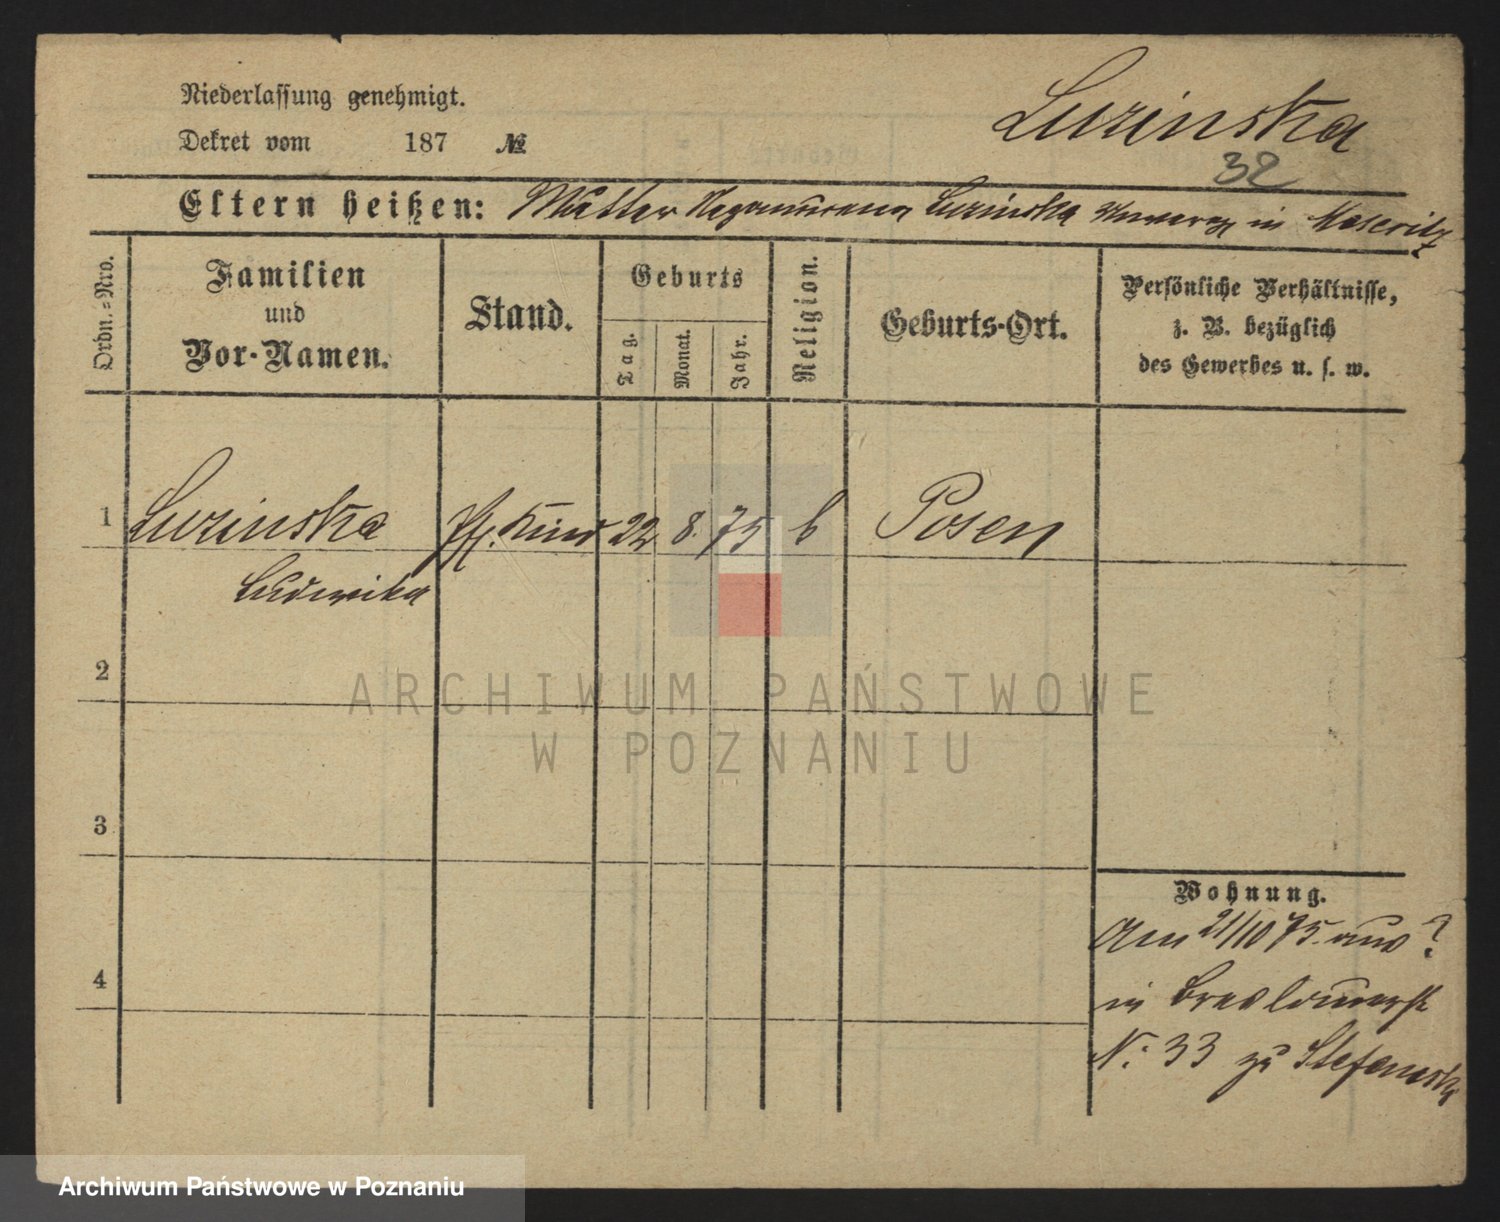 Niederlassung genehmigt.
Dekret vom 187 №
Luzinska
32
Eltern heißen: Mutter Luzinska in Meseritz
Ordn.-Nro.
Familien
und
Vor-Namen.
Stand.
Geburts
Tag.
Monat.
Jahr.
Religion.
Geburts-Ort.
Persönliche Verhältnisse,
z. B. bezüglich
des Gewerbes u. s. w.
1 Luzinska Pfl. Kind 22 8. 75 k Posen
Ludwika
2
3
4
Wohnung.
Am 21/10 75. aus ?
in Breslauerstr
N: 33 zu Stefanska
ARCHIWUM PAŃSTWOWE
W POZNANIU
Archiwum Państwowe w Poznaniu